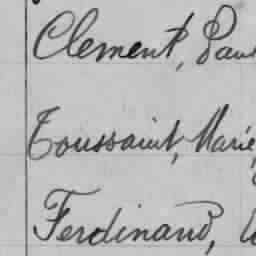 Clement, Paul
Toussaint, Marie,
Ferdinand,